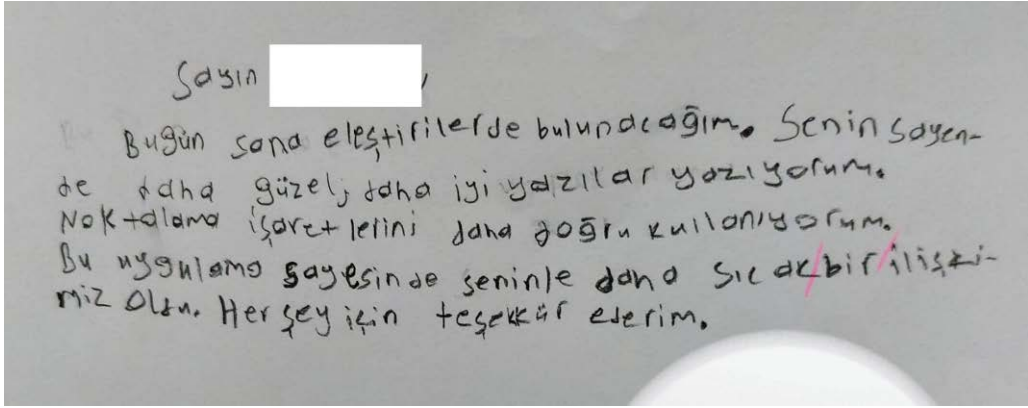 Sayın ,
Bugün sana eleştirilerde bulunacağım. Senin sayen-
de daha güzel, daha iyi yazılar yazıyorum.
Noktalama işaretlerini daha doğru kullanıyorum.
Bu uygulama sayesinde seninle daha sıcak/bir/ilişki-
miz oldu. Her şey için teşekkür ederim.